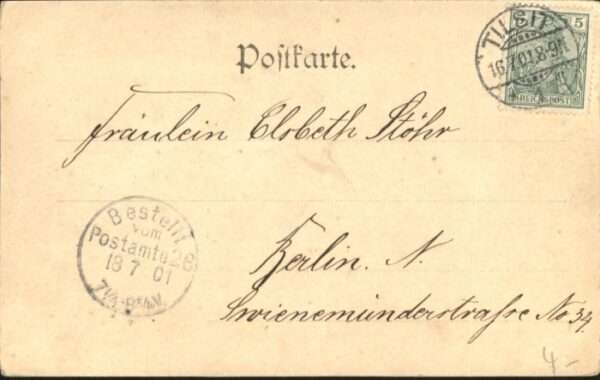 Postkarte.
TILSIT
16.7.01.8-9N
5
Fräulein Elsbeth Stöhr
Bestellt
vom
Postamte 28
18 7 01
Berlin. N.
Swienemünderstraße No 34
4-